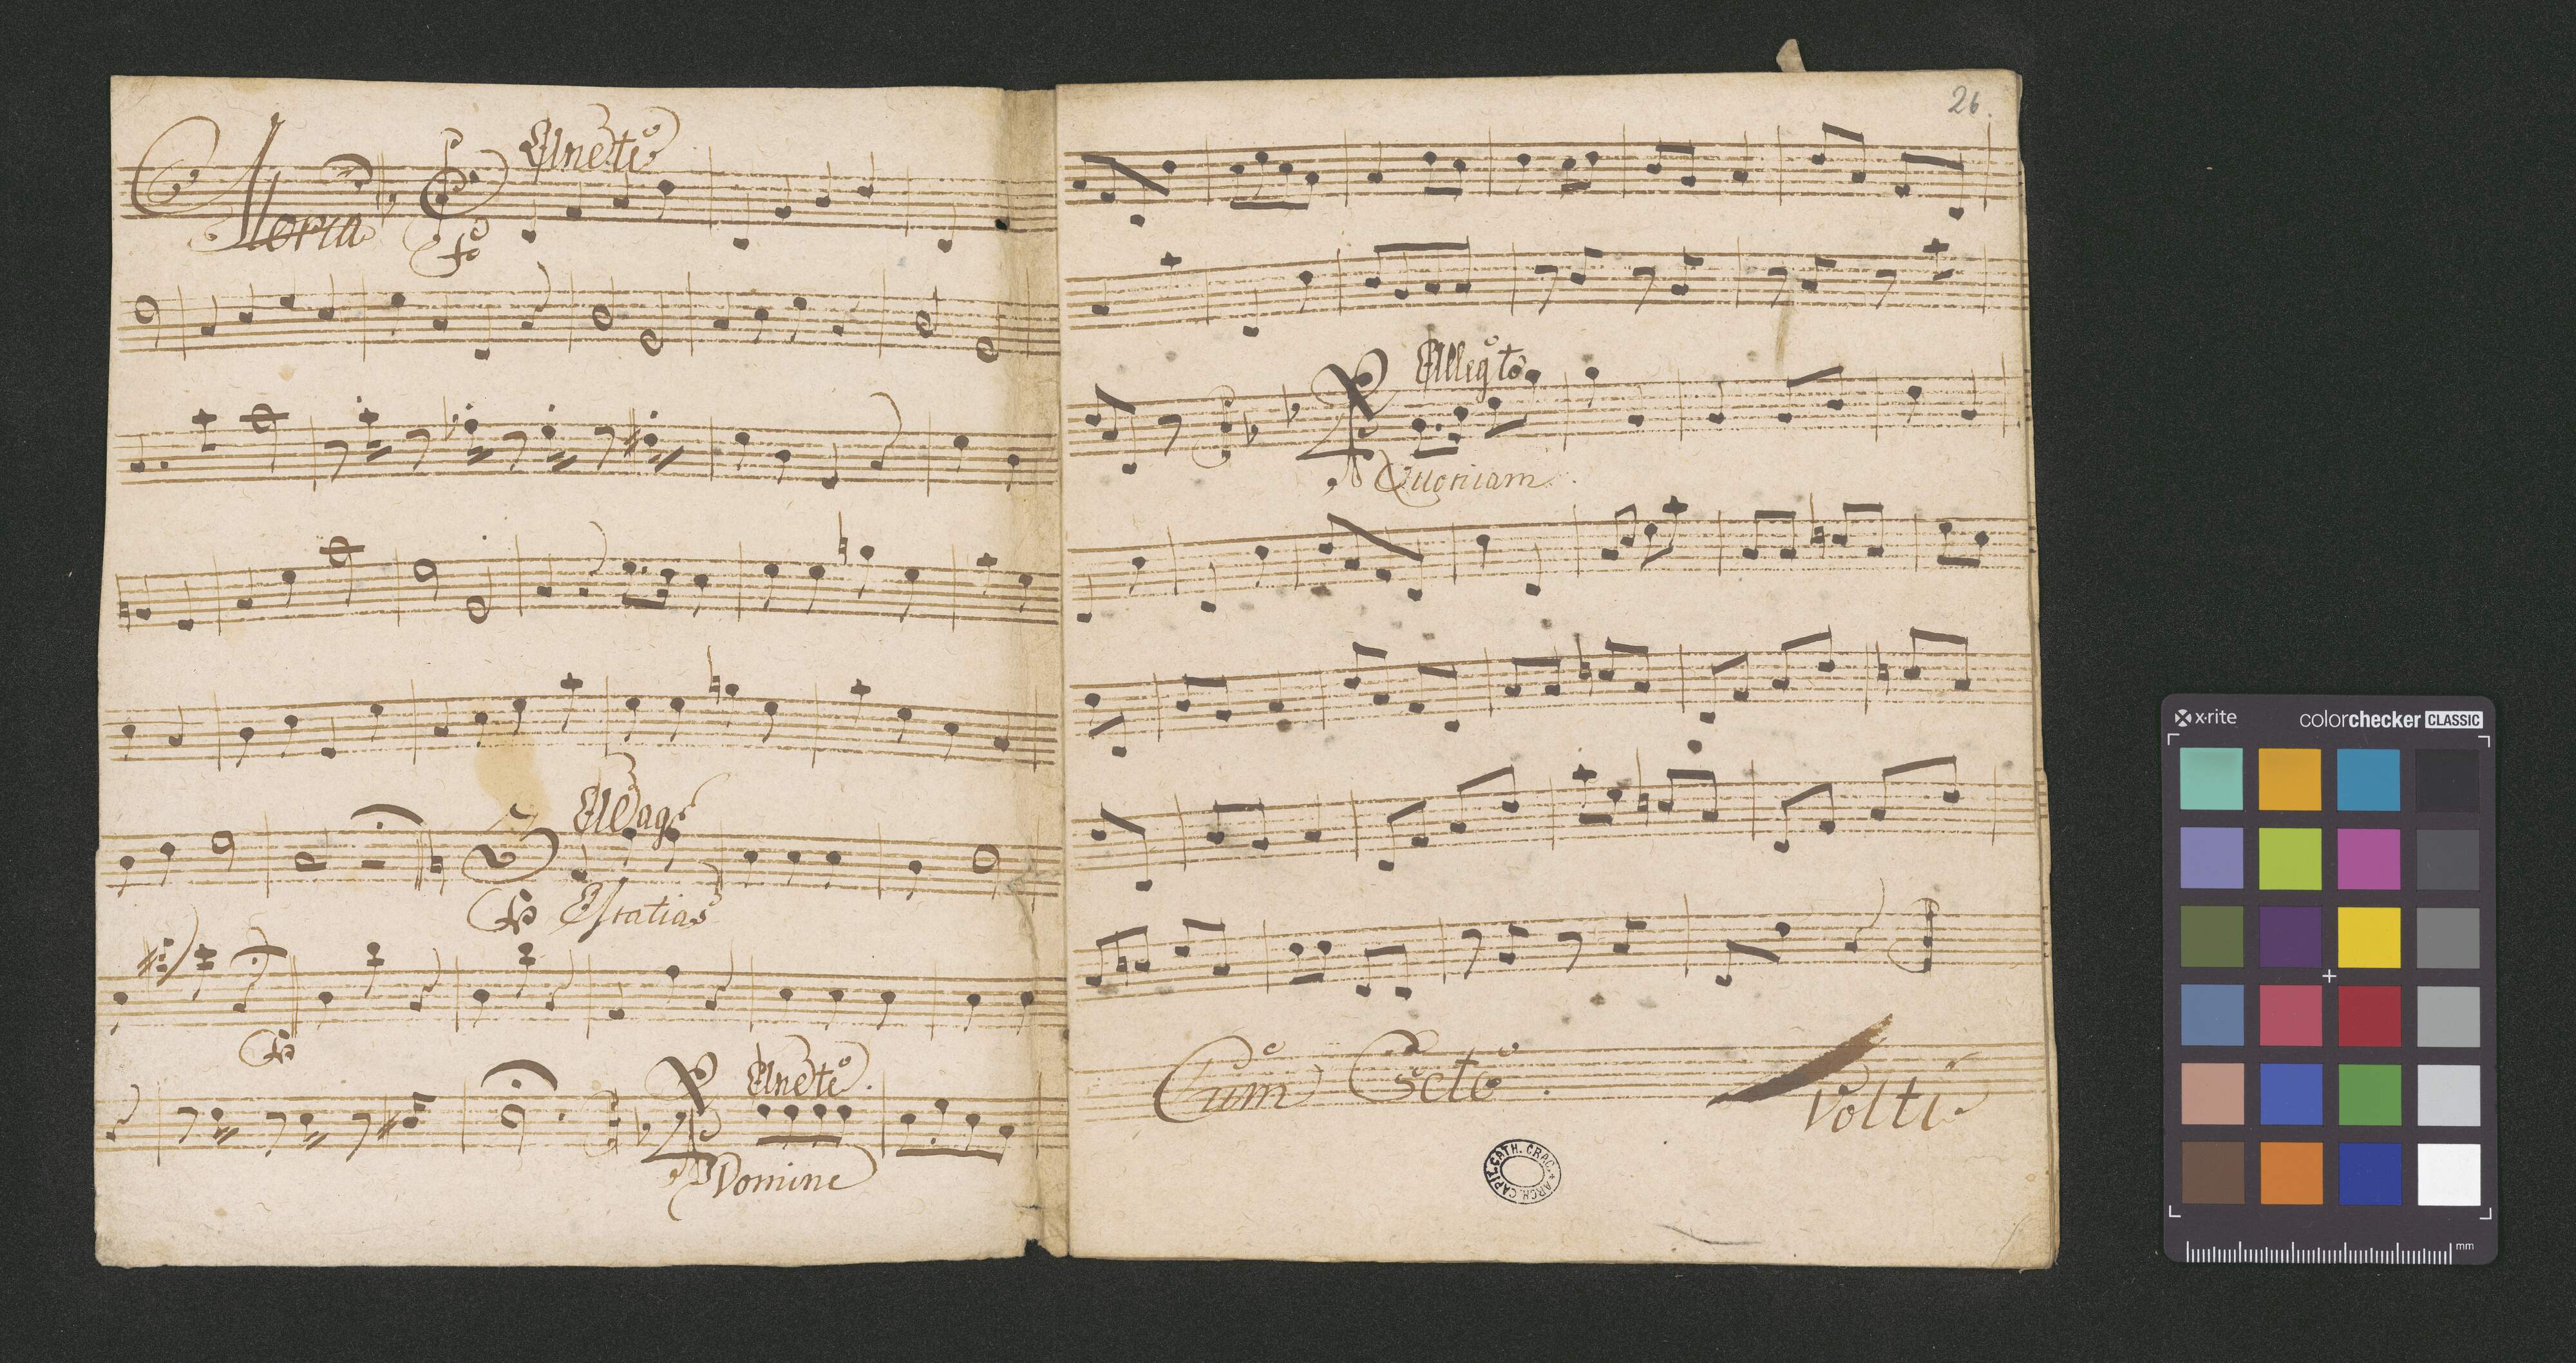 Gloria
Andte
fo
Adago
po Gratias
po
Andte
Domine
26.
Allegto
Quoniam
Cum Scto.
Volti
ARCH. CAPIT. CATH. CRAC.
x-rite
colorchecker CLASSIC
mm